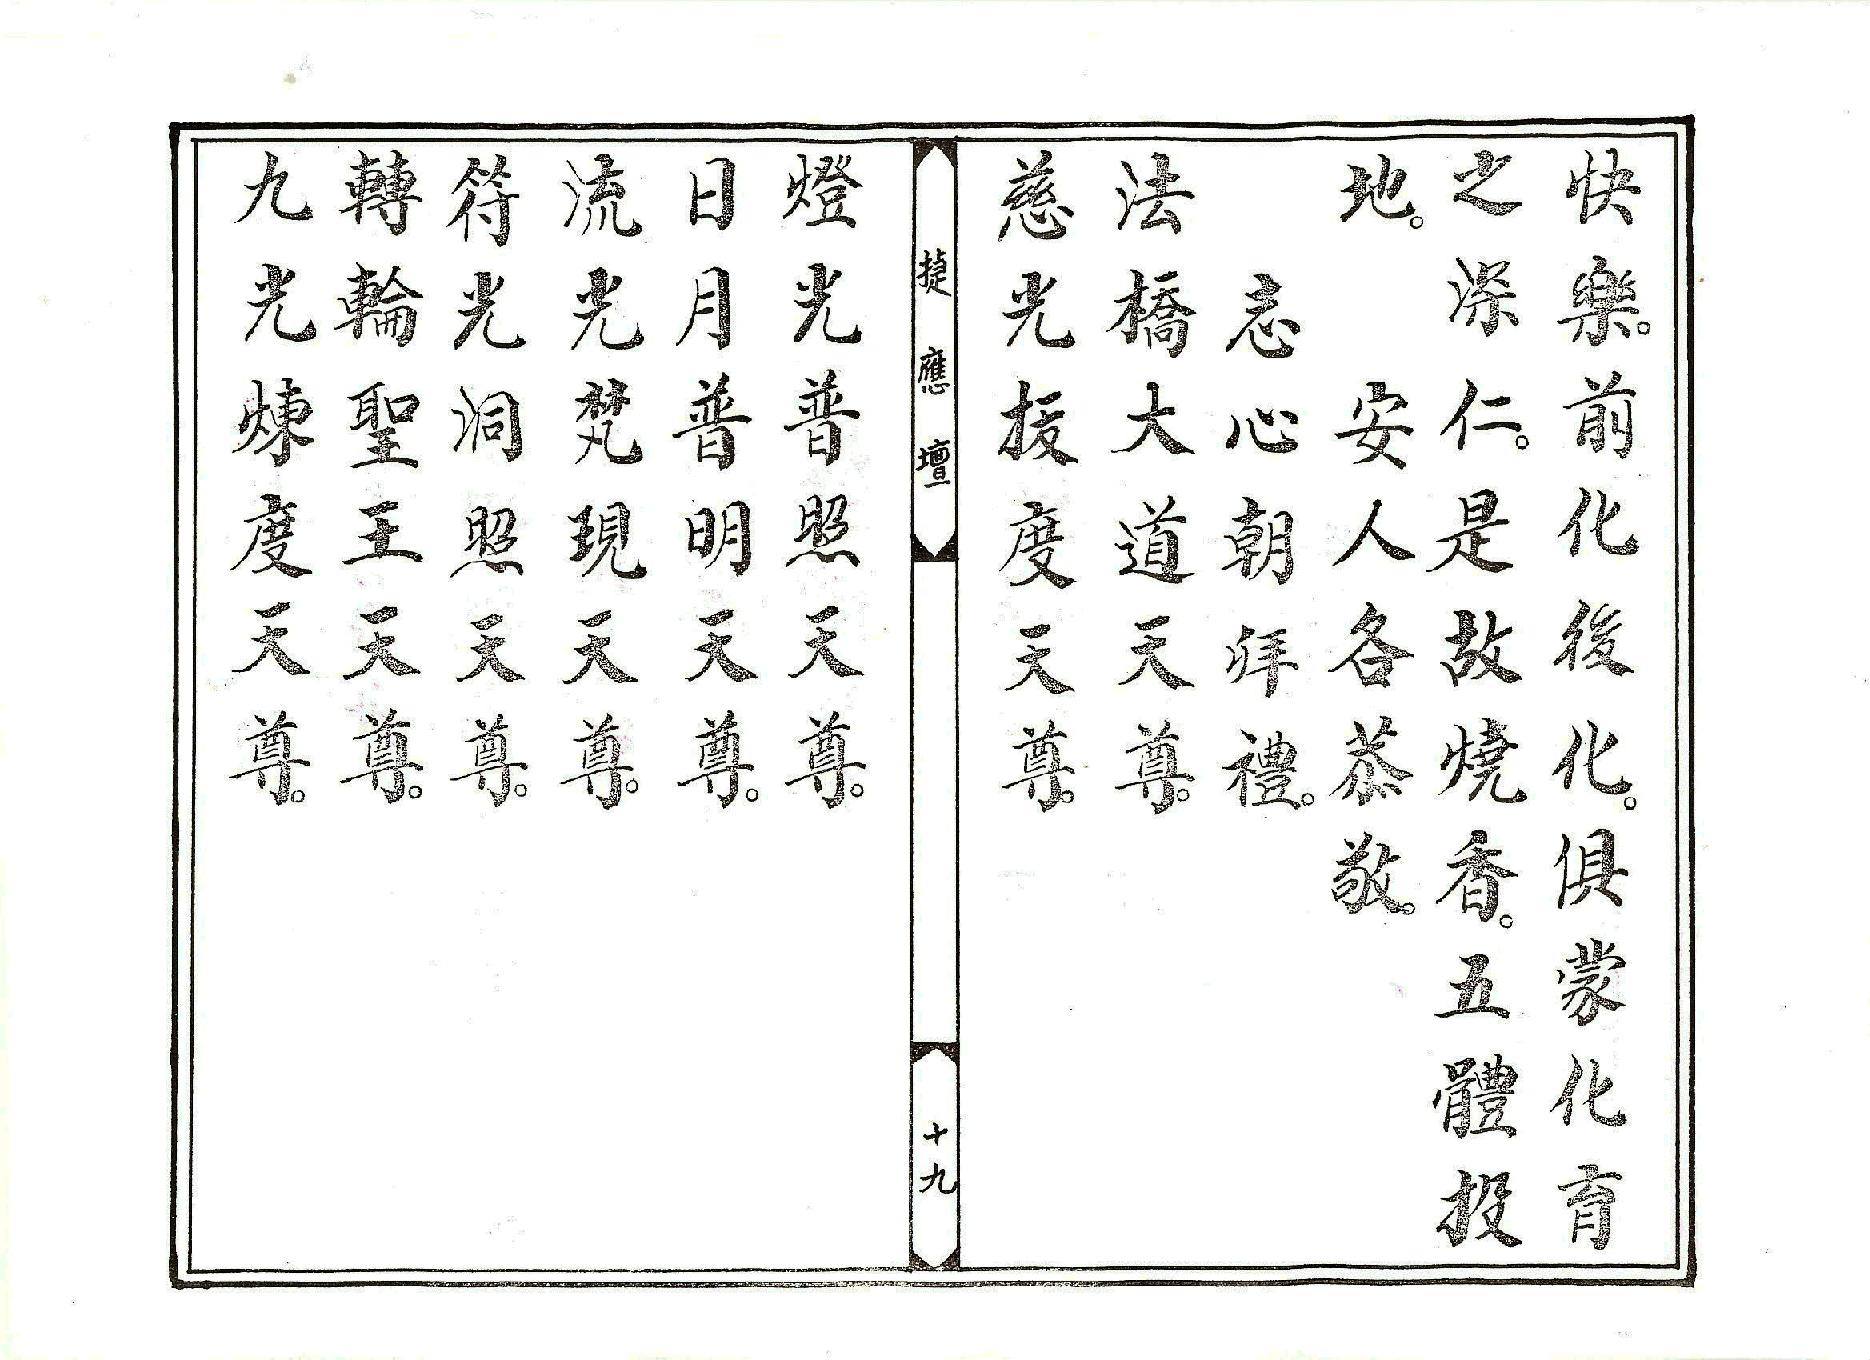 快樂。前化後化。俱蒙化育
之深仁。是故燒香。五體投
地。 安人各恭敬。
志心朝拜禮。
法橋大道天尊。
慈光拔度天尊。
捷應壇
十九
燈光普照天尊。
日月普明天尊。
流光梵現天尊。
符光洞照天尊。
轉輪聖王天尊。
九光煉度天尊。